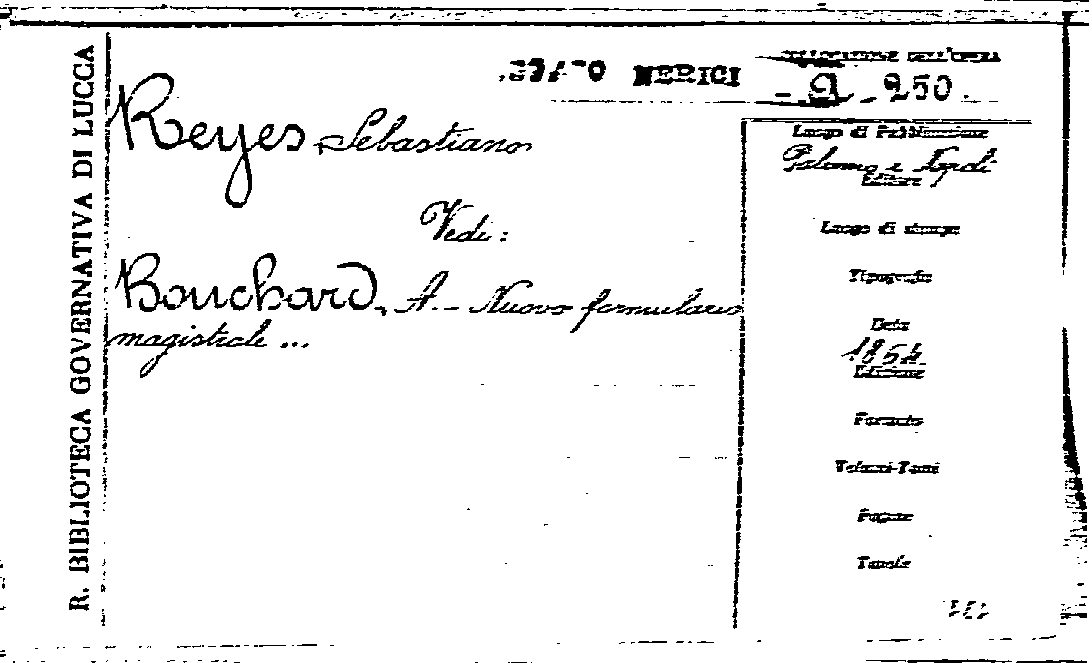 R. BIBLIOTECA GOVERNATIVA DI LUCCA
NERICI
COLLOCAZIONE DELL'OPERA
- 9 - 250.
Reyes, Sebastiano
Vedi:
Bouchard, A. - Nuovo formulario
magistrale ...
Luogo di Pubblicazione
Palermo e Napoli
Editore
Luogo di stampa
Tipografia
Data
1854
Edizione
Formato
Volumi-Tomi
Pagine
Tavole